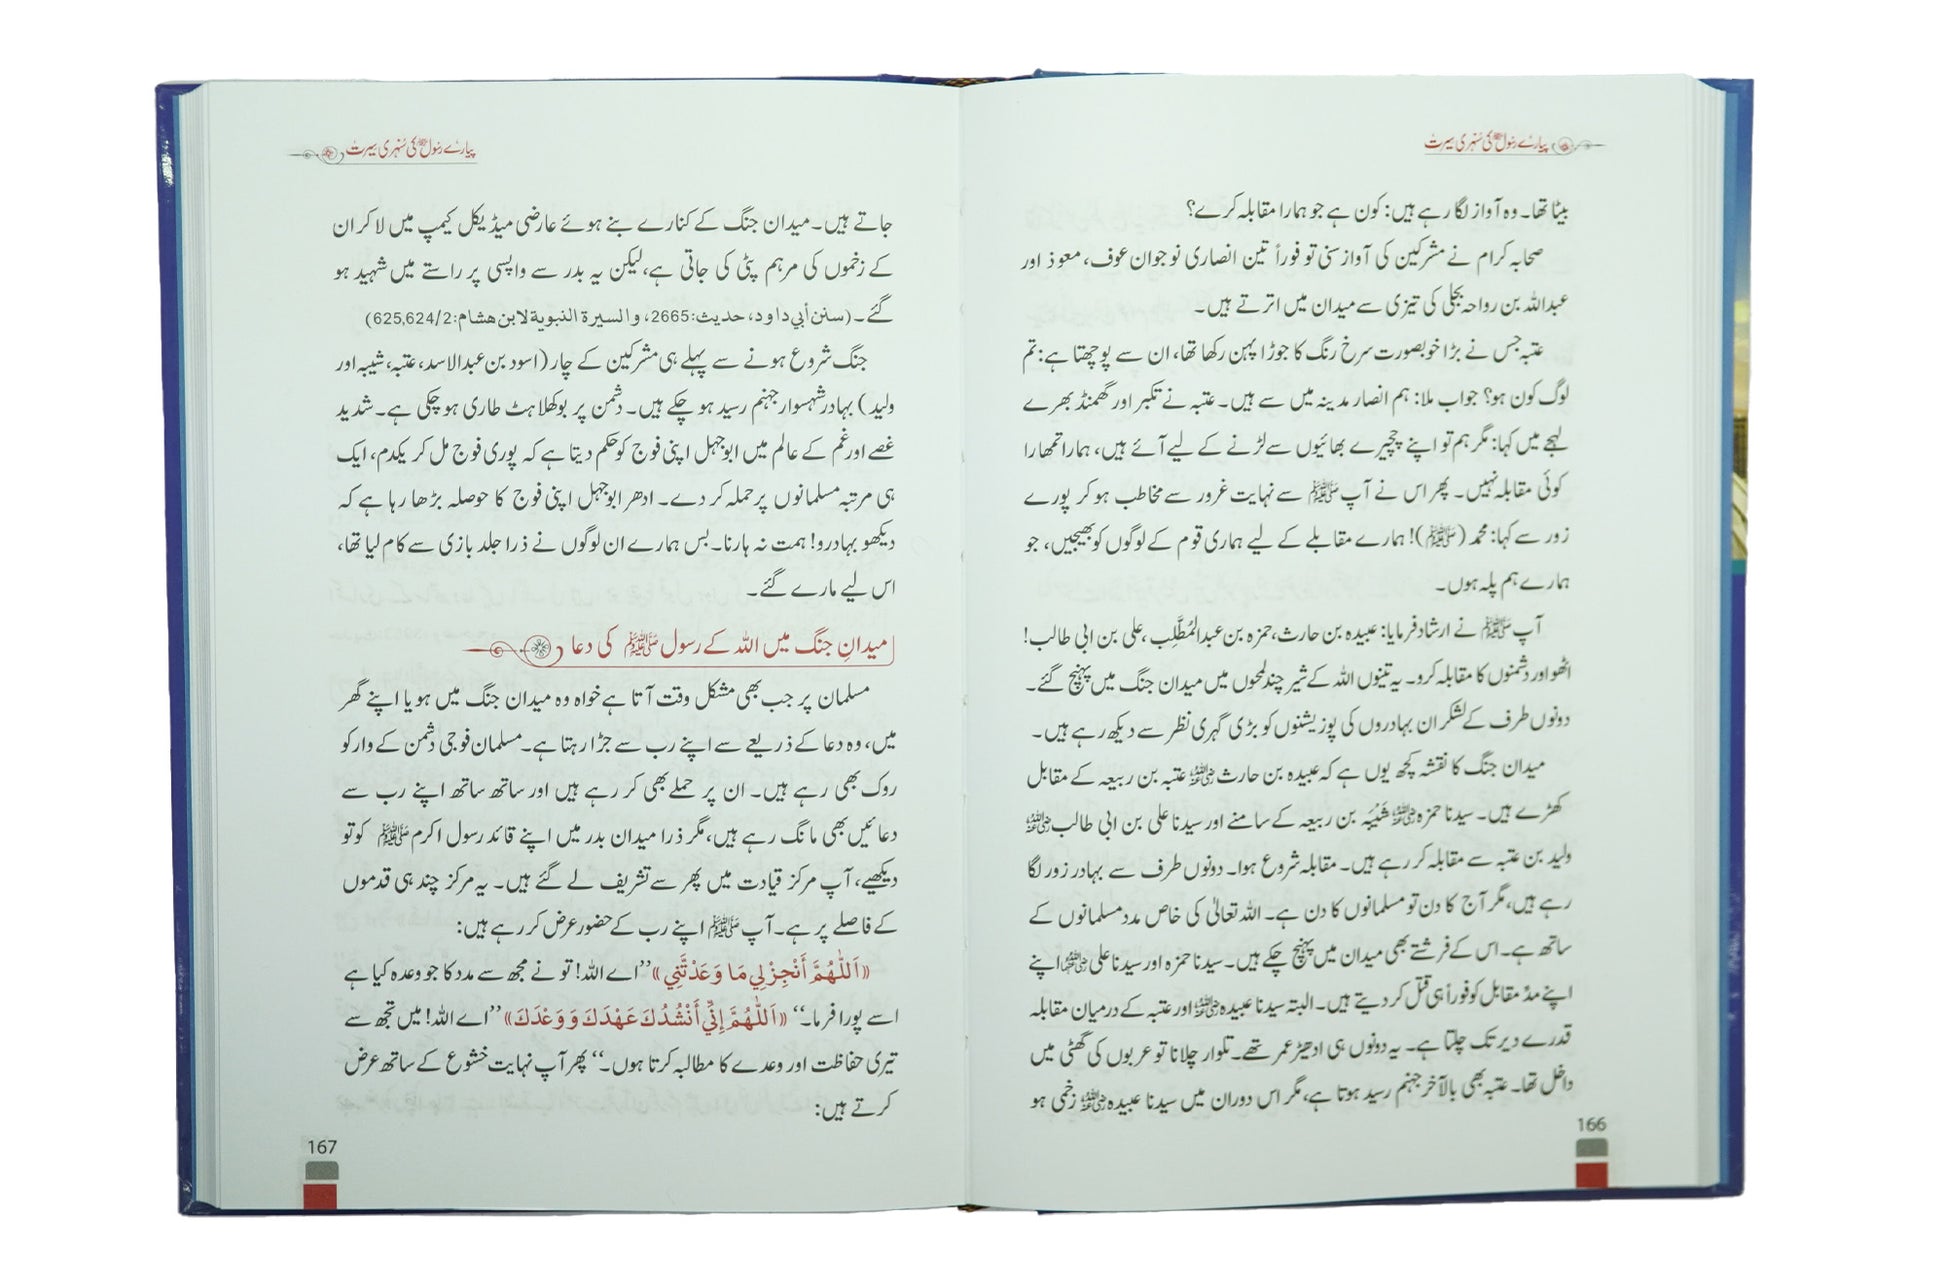 پیارے رسول ﷺ کی سنہری سیرت
بیٹا تھا۔ وہ آواز لگا رہے ہیں: کون ہے جو ہمارا مقابلہ کرے؟
صحابہ کرام نے مشرکین کی آواز سنی تو فوراً تین انصاری نوجوان عوف، معوذ اور
عبداللہ بن رواحہ بجلی کی تیزی سے میدان میں اترتے ہیں۔
عتبہ جس نے بڑا خوبصورت سرخ رنگ کا جوڑا پہن رکھا تھا، ان سے پوچھتا ہے: تم
لوگ کون ہو؟ جواب ملا: ہم انصار مدینہ میں سے ہیں۔ عتبہ نے تکبر اور گھمنڈ بھرے
لہجے میں کہا: مگر ہم تو اپنے چچیرے بھائیوں سے لڑنے کے لیے آئے ہیں، ہمارا تمھارا
کوئی مقابلہ نہیں۔ پھر اس نے آپ ﷺ سے نہایت غرور سے مخاطب ہو کر پورے
زور سے کہا: محمد (ﷺ)! ہمارے مقابلے کے لیے ہماری قوم کے لوگوں کو بھیجیں، جو
ہمارے ہم پلہ ہوں۔
آپ ﷺ نے ارشاد فرمایا: عبیدہ بن حارث، حمزہ بن عبدالمُطَّلِب، علی بن ابی طالب!
اٹھو اور دشمنوں کا مقابلہ کرو۔ یہ تینوں اللہ کے شیر چند لمحوں میں میدان جنگ میں پہنچ گئے۔
دونوں طرف کے لشکر ان بہادروں کی پوزیشنوں کو بڑی گہری نظر سے دیکھ رہے ہیں۔
میدان جنگ کا نقشہ کچھ یوں ہے کہ عبیدہ بن حارث رضی اللہ عنہ عتبہ بن ربیعہ کے مقابل
کھڑے ہیں۔ سیدنا حمزہ رضی اللہ عنہ شَیْبَہ بن ربیعہ کے سامنے اور سیدنا علی بن ابی طالب رضی اللہ عنہ
ولید بن عتبہ سے مقابلہ کر رہے ہیں۔ مقابلہ شروع ہوا۔ دونوں طرف سے بہادر زور لگا
رہے ہیں، مگر آج کا دن تو مسلمانوں کا دن ہے۔ اللہ تعالیٰ کی خاص مدد مسلمانوں کے
ساتھ ہے۔ اس کے فرشتے بھی میدان میں پہنچ چکے ہیں۔ سیدنا حمزہ اور سیدنا علی رضی اللہ عنہما اپنے
اپنے مدّ مقابل کو فوراً ہی قتل کر دیتے ہیں۔ البتہ سیدنا عبیدہ رضی اللہ عنہ اور عتبہ کے درمیان مقابلہ
قدرے دیر تک چلتا ہے۔ یہ دونوں ہی ادھیڑ عمر تھے۔ تلوار چلانا تو عربوں کی گھٹی میں
داخل تھا۔ عتبہ بھی بالآخر جہنم رسید ہوتا ہے، مگر اس دوران میں سیدنا عبیدہ رضی اللہ عنہ زخمی ہو
166
پیارے رسول ﷺ کی سنہری سیرت
جاتے ہیں۔ میدان جنگ کے کنارے بنے ہوئے عارضی میڈیکل کیمپ میں لا کر ان
کے زخموں کی مرہم پٹی کی جاتی ہے، لیکن یہ بدر سے واپسی پر راستے میں شہید ہو
گئے۔ (سنن أبي داود، حديث: 2665، والسيرة النبوية لابن هشام: 625,624/2)
جنگ شروع ہونے سے پہلے ہی مشرکین کے چار (اسود بن عبدالاسد، عتبہ، شیبہ اور
ولید) بہادر شہسوار جہنم رسید ہو چکے ہیں۔ دشمن پر بوکھلاہٹ طاری ہو چکی ہے۔ شدید
غصے اور غم کے عالم میں ابوجہل اپنی فوج کو حکم دیتا ہے کہ پوری فوج مل کر یکدم، ایک
ہی مرتبہ مسلمانوں پر حملہ کر دے۔ ادھر ابوجہل اپنی فوج کا حوصلہ بڑھا رہا ہے کہ
دیکھو بہادرو! ہمت نہ ہارنا۔ بس ہمارے ان لوگوں نے ذرا جلد بازی سے کام لیا تھا،
اس لیے مارے گئے۔
میدانِ جنگ میں اللہ کے رسول ﷺ کی دعا
مسلمان پر جب بھی مشکل وقت آتا ہے خواہ وہ میدان جنگ میں ہو یا اپنے گھر
میں، وہ دعا کے ذریعے سے اپنے رب سے جڑا رہتا ہے۔ مسلمان فوجی دشمن کے وار کو
روک بھی رہے ہیں۔ ان پر حملے بھی کر رہے ہیں اور ساتھ ساتھ اپنے رب سے
دعائیں بھی مانگ رہے ہیں، مگر ذرا میدان بدر میں اپنے قائد رسول اکرم ﷺ کو تو
دیکھیے، آپ مرکز قیادت میں پھر سے تشریف لے گئے ہیں۔ یہ مرکز چند ہی قدموں
کے فاصلے پر ہے۔ آپ ﷺ اپنے رب کے حضور عرض کر رہے ہیں:
«اَللّٰهُمَّ أَنْجِزْ لِي مَا وَعَدْتَّنِي» ’’اے اللہ! تو نے مجھ سے مدد کا جو وعدہ کیا ہے
اسے پورا فرما۔‘‘ «اَللّٰهُمَّ إِنِّي أَنْشُدُكَ عَهْدَكَ وَوَعْدَكَ» ’’اے اللہ! میں تجھ سے
تیری حفاظت اور وعدے کا مطالبہ کرتا ہوں۔‘‘ پھر آپ نہایت خشوع کے ساتھ عرض
کرتے ہیں:
167